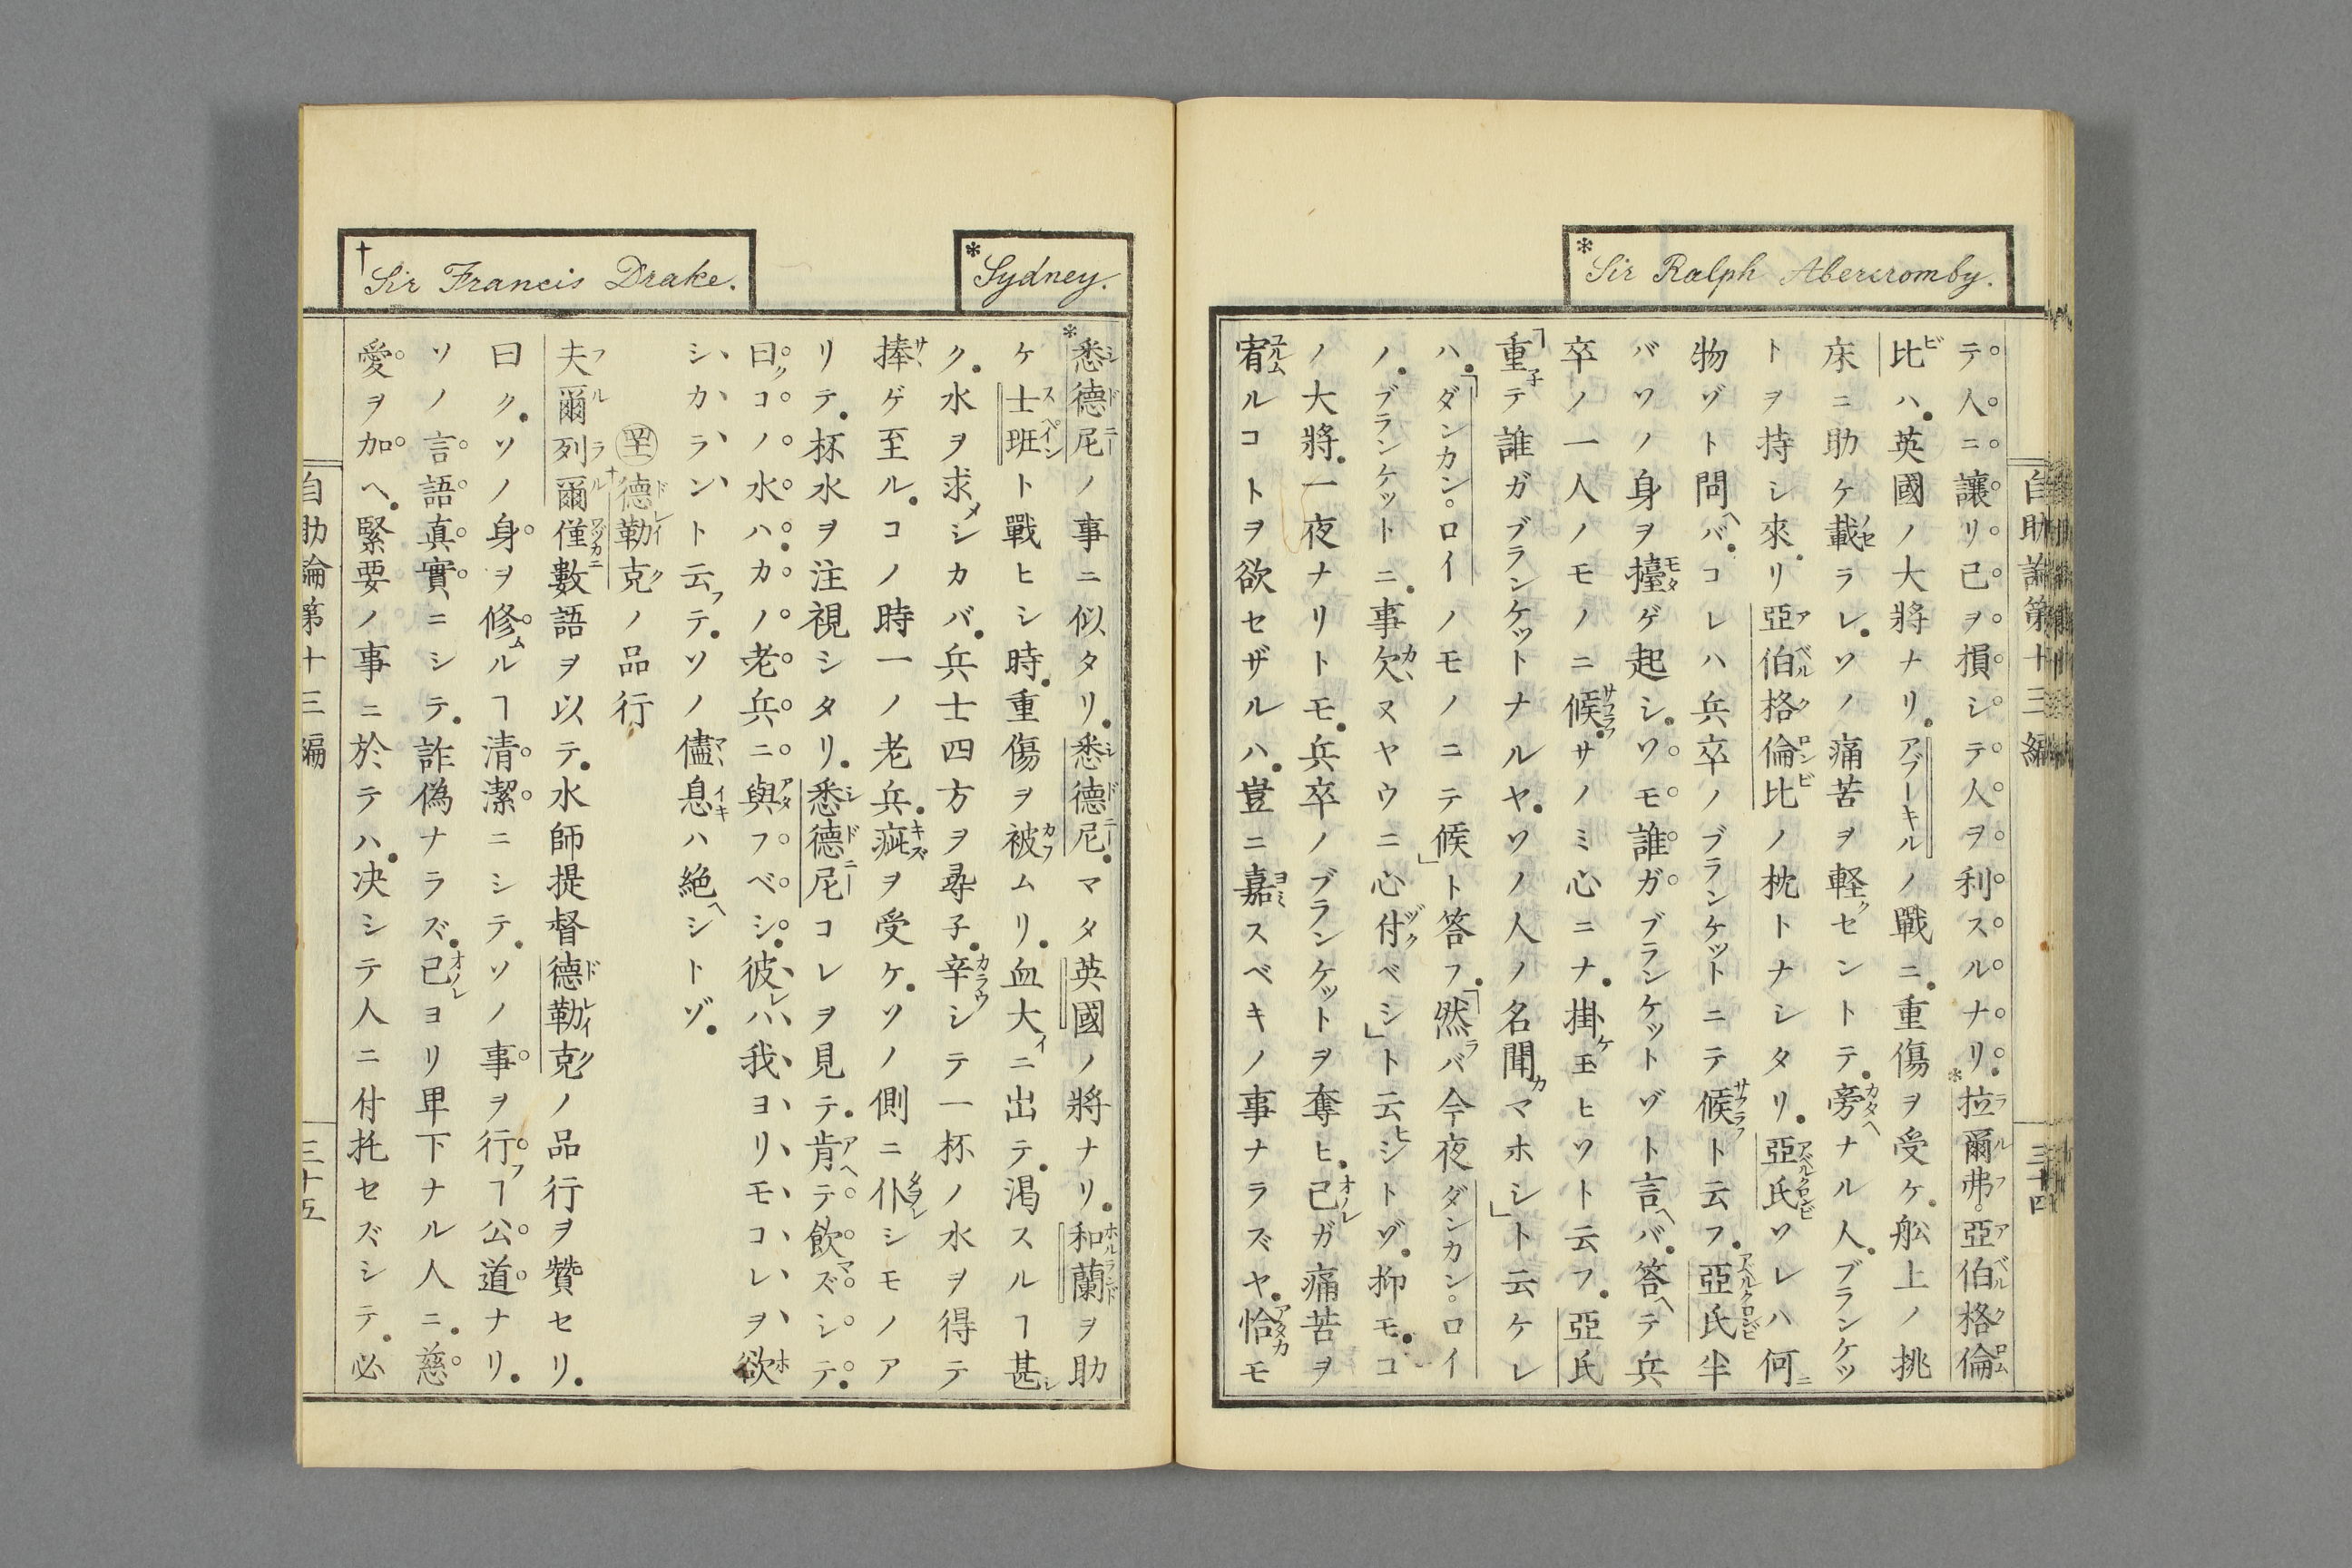 自助論第十三編
三十四
*Sir Ralph Abercromby.
テ人ニ讓リ己ヲ損シテ人ヲ利スルナリ.*拉爾弗。亞伯格倫
比ハ.英國ノ大將ナリ.アブーキルノ戰ニ.重傷ヲ受ケ.舩上ノ挑
床ニ助ケ載ラレ.ソノ痛苦ヲ軽クセントテ.旁ナル人.ブランケッ
トヲ持シ來リ.亞伯格倫比ノ枕トナシタリ.亞氏ソレハ何ニ
物ゾト問ヘバ.コレハ兵卒ノブランケットニテ候ト云フ.亞氏半
バソノ身ヲ擡ゲ起シ.ソモ誰ガブランケットゾト言ヘバ.答ヘテ兵
卒ノ一人ノモノニ候フ.サノミ心ニナ.掛ケ玉ヒソト云フ.亞氏
「重子テ誰ガブランケットナルヤ.ソノ人ノ名聞カマホシ」ト云ケレ
ハ.「ダンカン。ロイノモノニテ候」ト答フ.「然ラバ今夜ダンカン。ロイ
ノ.ブランケットニ.事欠ヌヤウニ心付ベシ」ト云ヒシトゾ.抑モ.コ
ノ大將.一夜ナリトモ.兵卒ノブランケットヲ奪ヒ.己ガ痛苦ヲ
宥ルコトヲ欲セザルハ.豈ニ嘉スベキノ事ナラズヤ.恰モ
*Sydney.
†Sir Francis Drake.
*悉德尼ノ事ニ似タリ.悉德尼.マタ英國ノ將ナリ.和蘭ヲ助
ケ士班ト戰ヒシ時.重傷ヲ被ムリ.血大イニ出テ.渇スルヿ甚シ
ク.水ヲ求メシカバ.兵士四方ヲ尋子.辛シテ一杯ノ水ヲ得テ
捧ゲ至ル.コノ時一ノ老兵.疵ヲ受ケ.ソノ側ニ仆レシモノア
リテ.杯水ヲ注視シタリ.悉德尼コレヲ見テ.肯テ飲マズシテ.
曰クコノ水ハ.カノ老兵ニ與フベシ.彼レハ我ヨリモコレヲ欲
シカラント云フテ.ソノ儘息ハ絶ヘシトゾ.
†德勒克ノ品行
夫爾列爾僅數語ヲ以テ.水師提督德勒克ノ品行ヲ贊セリ.
曰ク.ソノ身ヲ修ムルヿ清潔ニシテ.ソノ事ヲ行フヿ公道ナリ.
ソノ言語真實ニシテ.詐偽ナラズ.己ヨリ卑下ナル人ニ.慈
愛ヲ加ヘ.緊要ノ事ニ於テハ.决シテ人ニ付托セズシテ.必
自助論第十三編
三十五